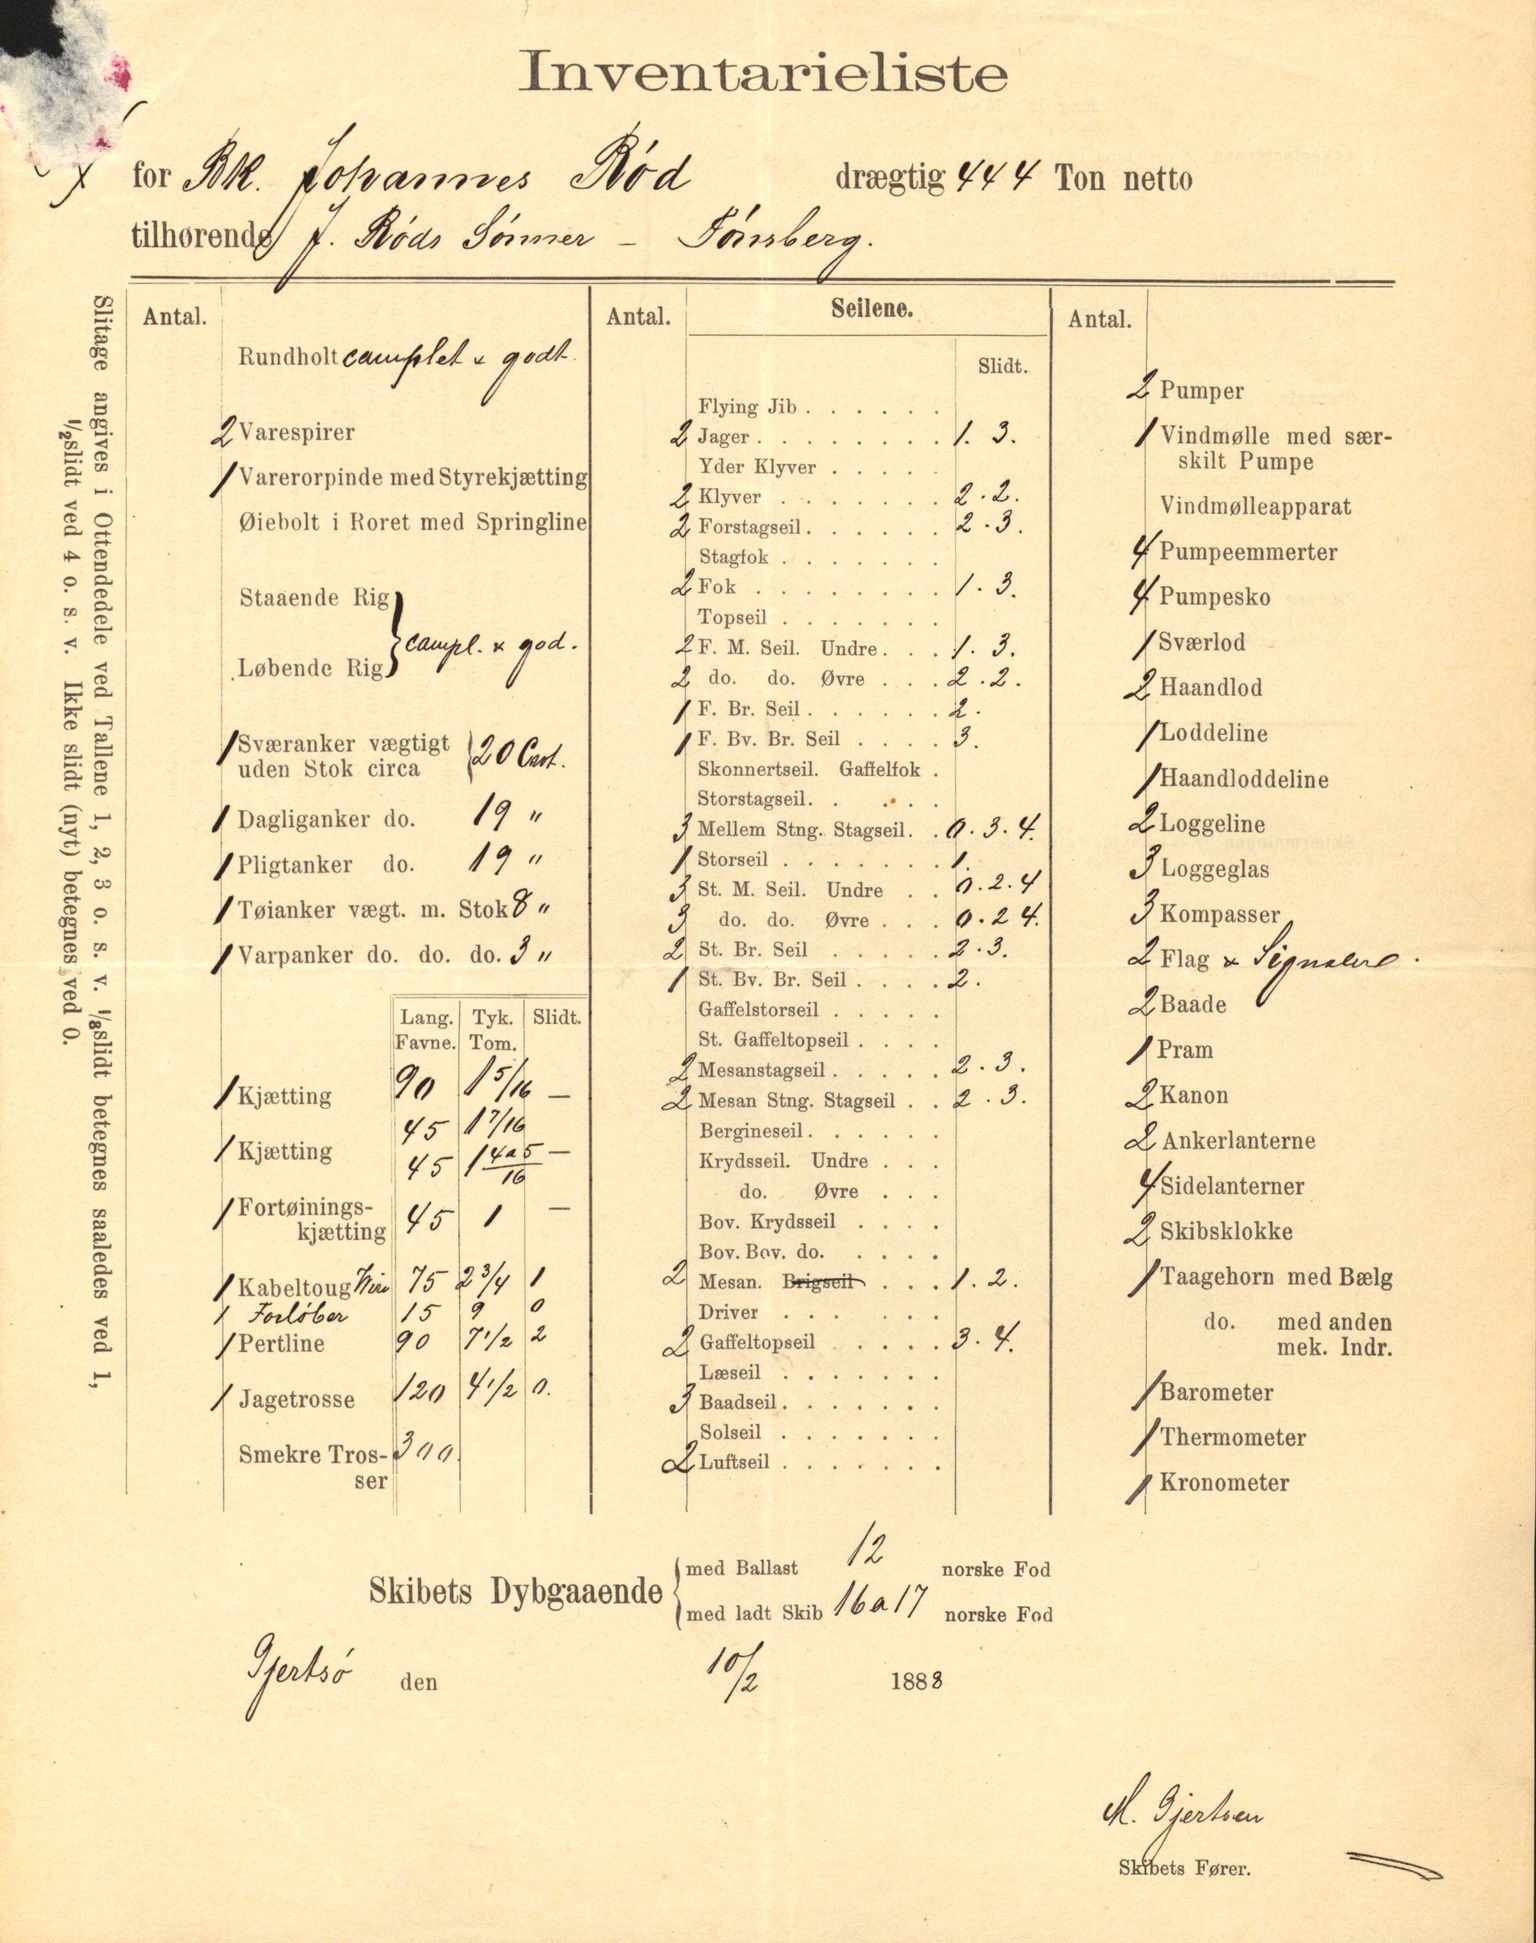 Inventarieliste
for Bk. Johannes Rød drægtig 444 Ton netto
tilhørende J. Røds Sønner – Tønsberg.
Slitage angives i Ottendedele ved Tallene 1, 2, 3 o. s. v. 1/8 slidt betegnes saaledes ved 1,
1/2 slidt ved 4 o. s. v. Ikke slidt (nyt) betegnes ved 0.
Antal.
Rundholt complet & godt.
2 Varespirer
1 Varerorpinde med Styrekjætting
Øiebolt i Roret med Springline
Staaende Rig
Løbende Rig } compl. & god.
1 Sværanker vægtigt
uden Stok circa { 20 Cwt.
1 Dagliganker do. 19 "
1 Pligtanker do. 19 "
1 Tøianker vægt. m. Stok 8 "
1 Varpanker do. do. do. 3 "
Lang. Tyk. Slidt.
Favne. Tom.
1 Kjætting 90 1 5/16 —
45 1 7/16
1 Kjætting 45 1 4a5/16 —
1 Fortøinings-
kjætting 45 1 —
1 Kabeltoug Wire 75 2 3/4 1
1 Forløber 15 9 0
1 Pertline 90 7 1/2 2
1 Jagetrosse 120 4 1/2 0.
Smekre Tros- 300.
ser
Antal. Seilene.
Slidt.
Flying Jib . . . . . .
2 Jager . . . . . . . . 1. 3.
Yder Klyver . . . . .
2 Klyver . . . . . . . 2. 2.
2 Forstagseil . . . . . . 2. 3.
Stagfok . . . . . . .
2 Fok . . . . . . . . 1. 3.
Topseil . . . . . . .
2 F. M. Seil. Undre . . . 1. 3.
2 do. do. Øvre . . . 2. 2.
1 F. Br. Seil . . . . . . 2.
1 F. Bv. Br. Seil . . . . 3.
Skonnertseil. Gaffelfok .
Storstagseil. . . . . .
3 Mellem Stng. Stagseil. . 0. 3. 4.
1 Storseil . . . . . . . 1.
3 St. M. Seil. Undre . . 0. 2. 4
3 do. do. Øvre . . . 0. 2 4.
2 St. Br. Seil . . . . . 2. 3.
1 St. Bv. Br. Seil . . . . 2.
Gaffelstorseil . . . . .
St. Gaffeltopseil . . . .
2 Mesanstagseil . . . . . 2. 3.
2 Mesan Stng. Stagseil . . 2. 3.
Bergineseil . . . . . .
Krydsseil. Undre . . .
do. Øvre . . .
Bov. Krydsseil . . . .
Bov. Bov. do. . . . .
2 Mesan. Brigseil . . . 1. 2.
Driver . . . . . .
2 Gaffeltopseil . . . . . 3. 4.
Læseil . . . . . . .
3 Baadseil . . . . . . .
Solseil . . . . . . .
2 Luftseil . . . . . . .
Antal.
2 Pumper
1 Vindmølle med sær-
skilt Pumpe
Vindmølleapparat
4 Pumpeemmerter
4 Pumpesko
1 Sværlod
2 Haandlod
1 Loddeline
1 Haandloddeline
2 Loggeline
3 Loggeglas
3 Kompasser
2 Flag & Signaler.
2 Baade
1 Pram
2 Kanon
2 Ankerlanterne
4 Sidelanterner
2 Skibsklokke
1 Taagehorn med Bælg
do. med anden
mek. Indr.
1 Barometer
1 Thermometer
1 Kronometer
Skibets Dybgaaende { med Ballast 12 norske Fod
med ladt Skib 16 a 17 norske Fod
Gjertsø den 10/2 1888
M. Gjertsen
Skibets Fører.